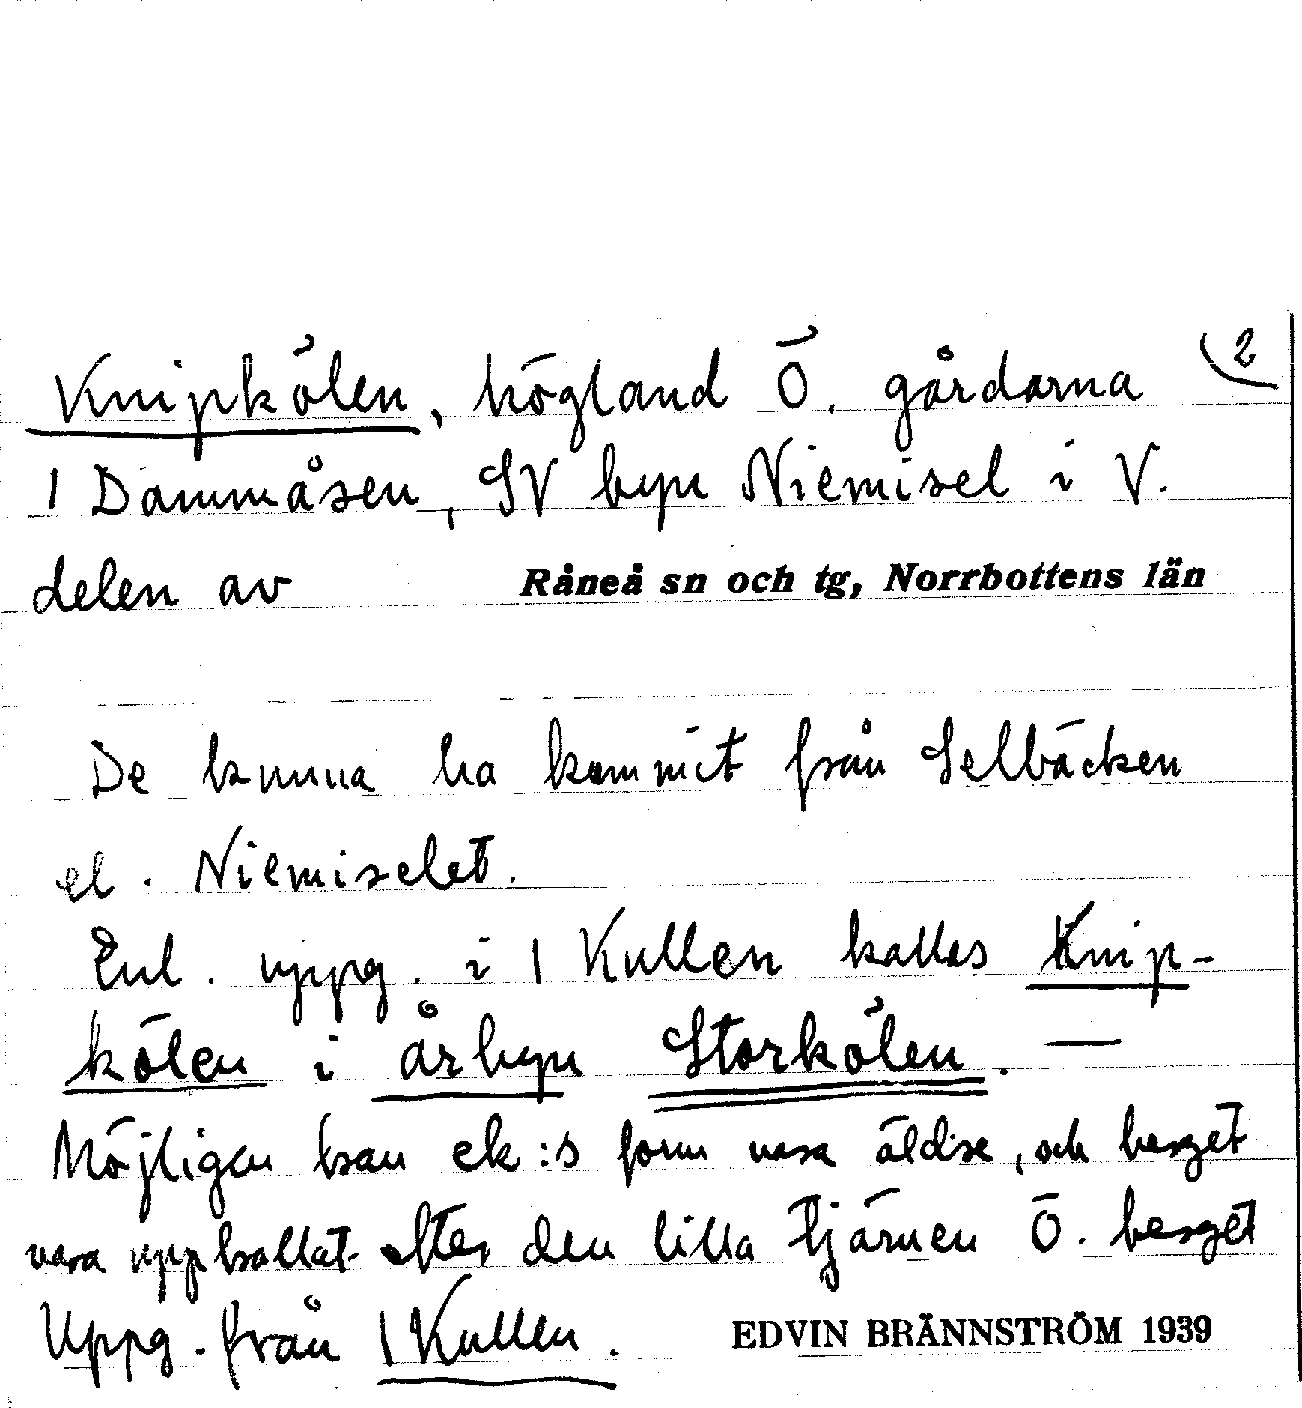 Knipkölen, högland Ö. gårdarna 2
1 Dammåsen, SV byn Niemisel i V.
delen av Råneå sn och tg, Norrbottens län
De kunna ha kommit från Selbäcken
el. Niemiselet.
Enl. uppg. i 1 Kullen kallas Knip-
kölen i årbyn Storkölen. —
Möjligen kan ek:s form vara äldre, och berget
vara uppkallat efter den lilla tjärnen Ö. berget
Uppg. från 1 Kullen. EDVIN BRÄNNSTRÖM 1939